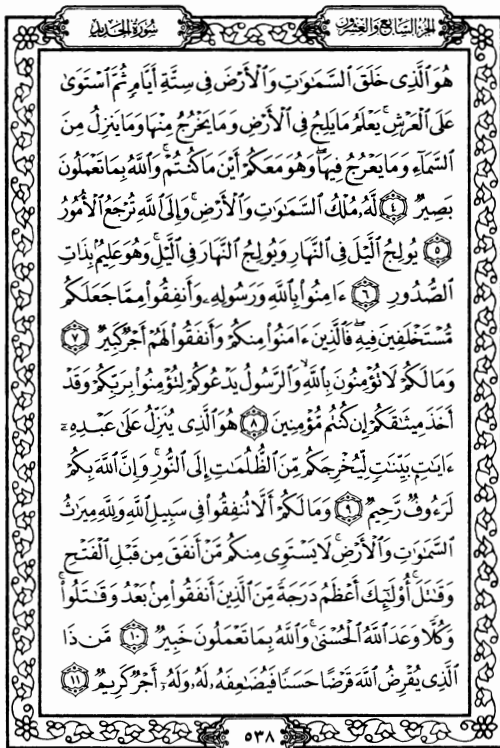 سُورَةُ الحَدِيدِ
الجزءُ السَّابِعُ وَالعِشْرُونَ
هُوَ ٱلَّذِى خَلَقَ ٱلسَّمَٰوَٰتِ وَٱلْأَرْضَ فِى سِتَّةِ أَيَّامٍ ثُمَّ ٱسْتَوَىٰ
عَلَى ٱلْعَرْشِ ۚ يَعْلَمُ مَا يَلِجُ فِى ٱلْأَرْضِ وَمَا يَخْرُجُ مِنْهَا وَمَا يَنزِلُ مِنَ
ٱلسَّمَآءِ وَمَا يَعْرُجُ فِيهَا ۖ وَهُوَ مَعَكُمْ أَيْنَ مَا كُنتُمْ ۚ وَٱللَّهُ بِمَا تَعْمَلُونَ
بَصِيرٌ ٤ لَّهُۥ مُلْكُ ٱلسَّمَٰوَٰتِ وَٱلْأَرْضِ ۚ وَإِلَى ٱللَّهِ تُرْجَعُ ٱلْأُمُورُ
٥ يُولِجُ ٱلَّيْلَ فِى ٱلنَّهَارِ وَيُولِجُ ٱلنَّهَارَ فِى ٱلَّيْلِ ۚ وَهُوَ عَلِيمٌۢ بِذَاتِ
ٱلصُّدُورِ ٦ ءَامِنُوا۟ بِٱللَّهِ وَرَسُولِهِۦ وَأَنفِقُوا۟ مِمَّا جَعَلَكُم
مُّسْتَخْلَفِينَ فِيهِ ۖ فَٱلَّذِينَ ءَامَنُوا۟ مِنكُمْ وَأَنفَقُوا۟ لَهُمْ أَجْرٌ كَبِيرٌ ٧
وَمَا لَكُمْ لَا تُؤْمِنُونَ بِٱللَّهِ ۙ وَٱلرَّسُولُ يَدْعُوكُمْ لِتُؤْمِنُوا۟ بِرَبِّكُمْ وَقَدْ
أَخَذَ مِيثَٰقَكُمْ إِن كُنتُم مُّؤْمِنِينَ ٨ هُوَ ٱلَّذِى يُنَزِّلُ عَلَىٰ عَبْدِهِۦٓ
ءَايَٰتٍۭ بَيِّنَٰتٍ لِّيُخْرِجَكُم مِّنَ ٱلظُّلُمَٰتِ إِلَى ٱلنُّورِ ۚ وَإِنَّ ٱللَّهَ بِكُمْ
لَرَءُوفٌ رَّحِيمٌ ٩ وَمَا لَكُمْ أَلَّا تُنفِقُوا۟ فِى سَبِيلِ ٱللَّهِ وَلِلَّهِ مِيرَٰثُ
ٱلسَّمَٰوَٰتِ وَٱلْأَرْضِ ۚ لَا يَسْتَوِى مِنكُم مَّنْ أَنفَقَ مِن قَبْلِ ٱلْفَتْحِ
وَقَٰتَلَ ۚ أُو۟لَٰٓئِكَ أَعْظَمُ دَرَجَةً مِّنَ ٱلَّذِينَ أَنفَقُوا۟ مِنۢ بَعْدُ وَقَٰتَلُوا۟ ۚ
وَكُلًّا وَعَدَ ٱللَّهُ ٱلْحُسْنَىٰ ۚ وَٱللَّهُ بِمَا تَعْمَلُونَ خَبِيرٌ ١٠ مَّن ذَا
ٱلَّذِى يُقْرِضُ ٱللَّهَ قَرْضًا حَسَنًا فَيُضَٰعِفَهُۥ لَهُۥ وَلَهُۥٓ أَجْرٌ كَرِيمٌ ١١
٥٣٨